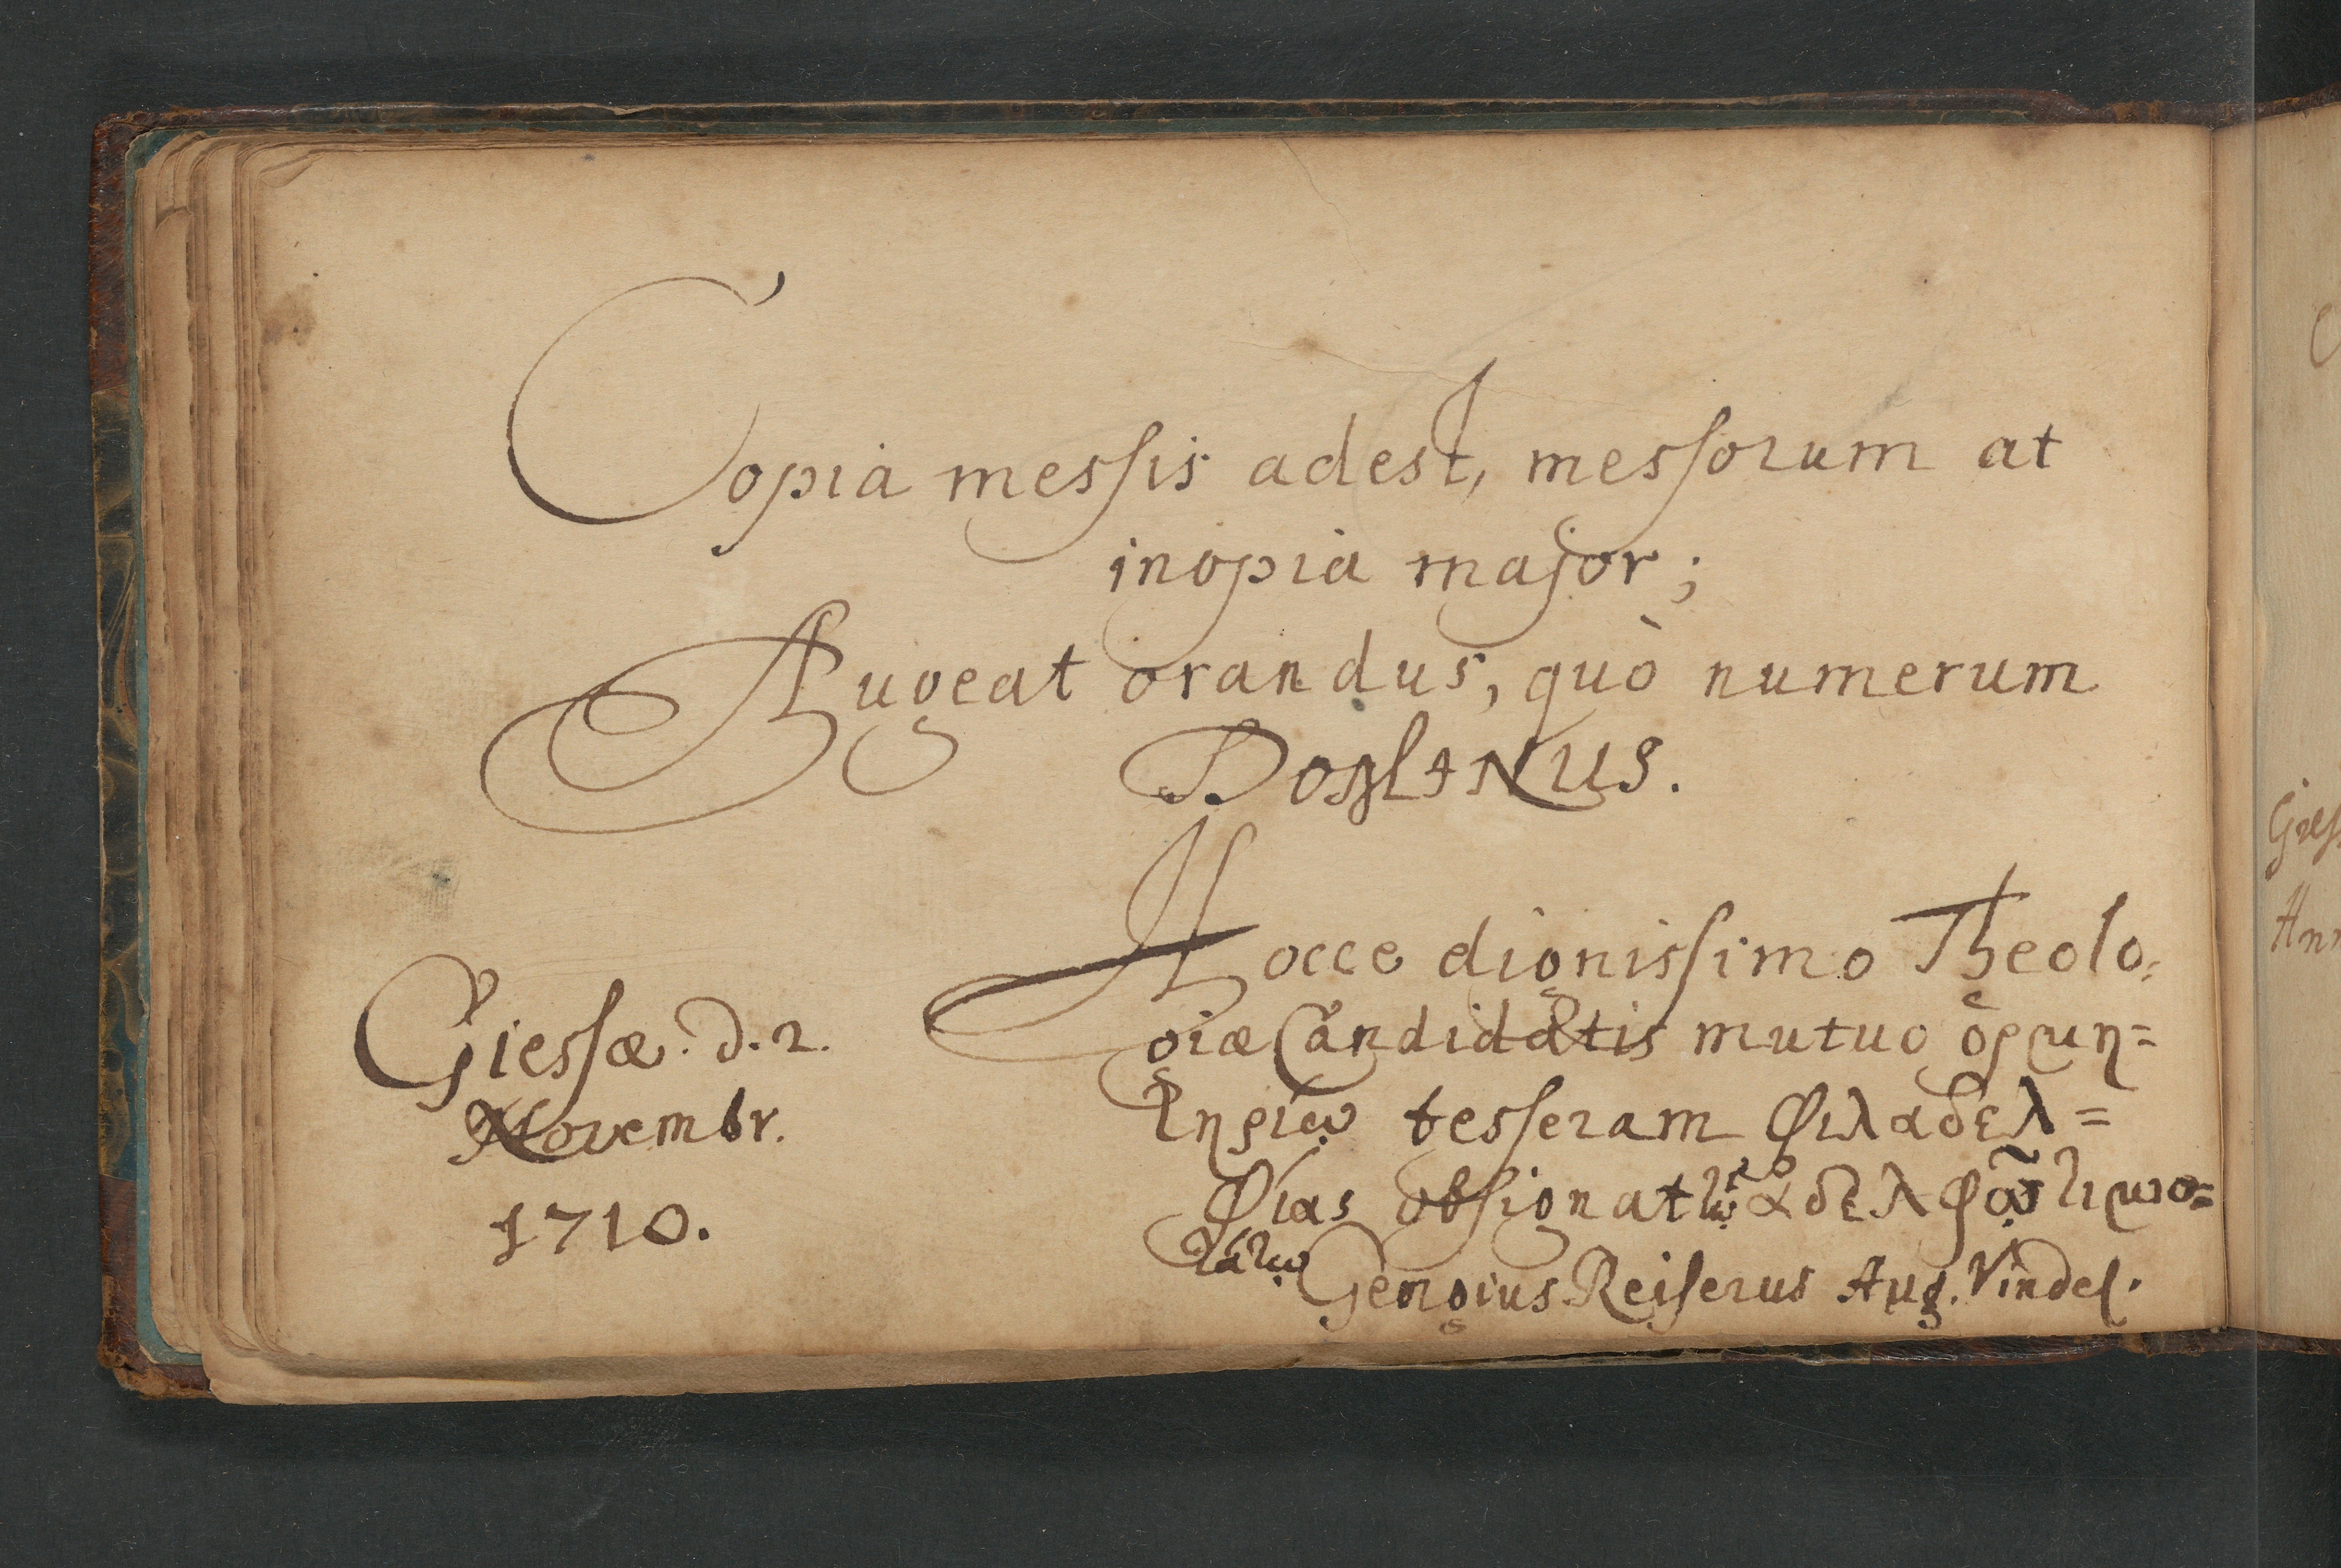 Copia messis adest, messorum at
inopia major;
Augeat orandus, quò numerum
DOMINUS.
Hocce dignissimo Theolo=
giæ Candidatis mutuo ὁρμη=
τηρίῳ tesseram Φιλαδελ=
Φίας obsignat τῷ ἀδελΦῷ τιμιο=
τάτῳ Georgius Reiserus Aug. Vindel.
Giessæ. d. 2.
Novembr.
1710.
C
Giess
Ann